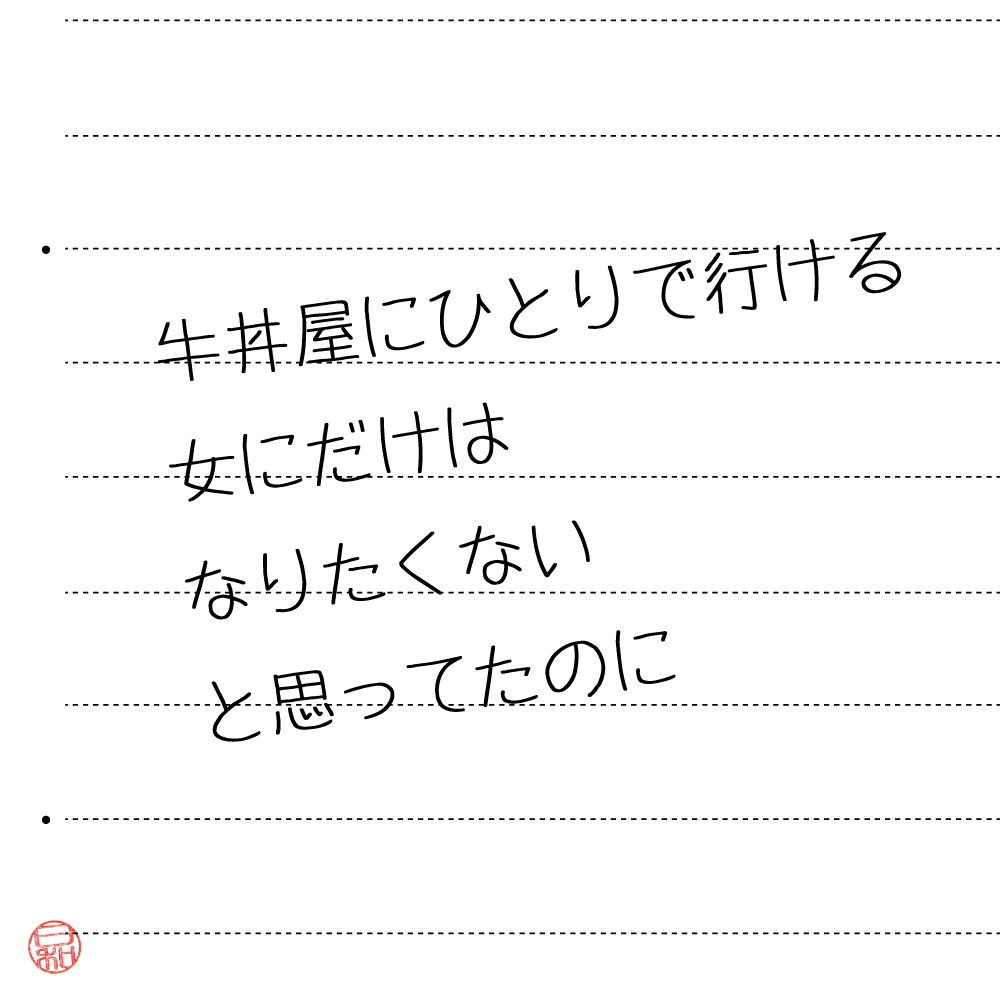 牛丼屋にひとりで行ける
女にだけは
なりたくない
と思ってたのに